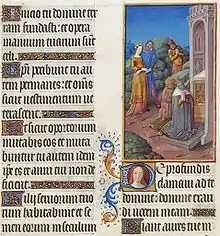 Inicio tu domine ter
ram fundasti: et opera
manuum tuarum sunt
celi.
Ipsi peribunt tu au
tem permanes: et om̄s
sicut vestimentum ve
terascent.
Et sicut opertorium
mutabis eos et muta
buntur tu autem idem
ipse es et anni tui non de
ficient.
Filii servorum tuo
rum habitabunt et se
men eorum in seculum
De profundis
clamavi ad te
domine: domine exau
di vocem meam.
Fiant aures tue